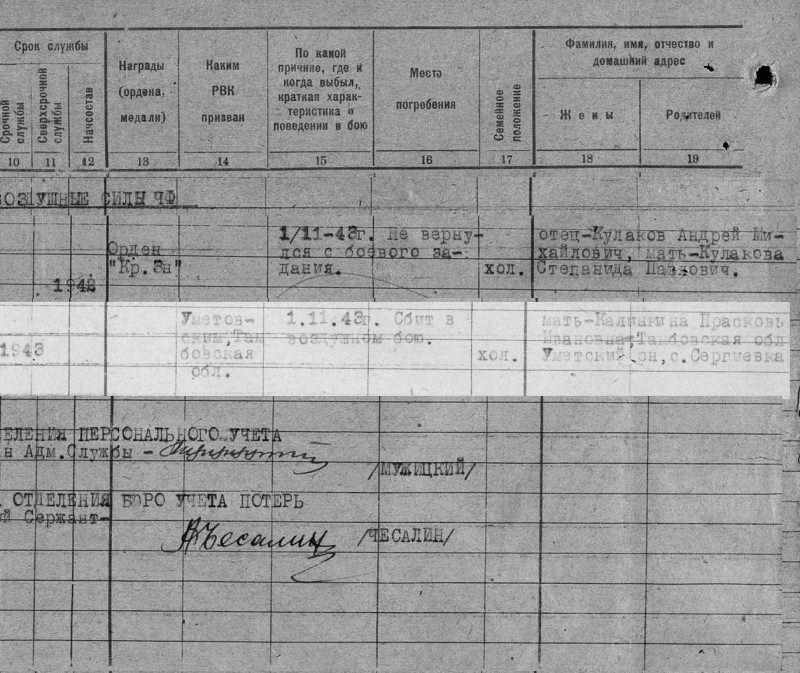 Срок службы
Срочной службы
Сверхсрочной службы
Начсостав
Награды
(ордена,
медали)
Каким
РВК
призван
По какой
причине, где и
когда выбыл,
краткая харак-
теристика о
поведении в бою
Место
погребения
Семейное
положение
Фамилия, имя, отчество и
домашний адрес
Жены
Родителей
10 11 12 13 14 15 16 17 18 19
ВОЗДУШНЫЕ СИЛЫ ЧФ
1942
Орден
"Кр.Зн"
1/11-43г. Не верну-
лся с боевого за-
дания.
хол.
отец-Кулаков Андрей Ми-
хайлович, мать-Кулакова
Степанида Павлович.
1943
Уметов-
ским, Там
бовская
обл.
1.11.43г. Сбит в
воздушном бою.
хол.
мать-Калинкина Прасковь
Ивановна, Тамбовская обл
Уметский рн, с. Сергиевка
ЕЛЕНИЯ ПЕРСОНАЛЬНОГО УЧЕТА
н Адм.Службы -
/МУЖИЦКИЙ/
ОТДЕЛЕНИЯ БЮРО УЧЕТА ПОТЕРЬ
ий Сержант-
Чесалин
/ЧЕСАЛИН/